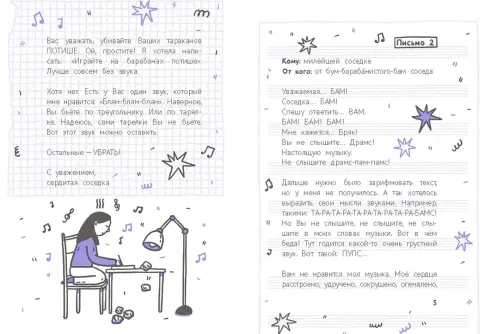 Вас уважать, убивайте Ваших тараканов
ПОТИШЕ. Ой, простите! Я хотела напи-
сать: «Играйте на барабанах потише».
Лучше совсем без звука.
Хотя нет. Есть у Вас один звук, который
мне нравится: «Блям-блям-блям». Наверное,
Вы бьёте по треугольнику. Или по тарел-
ке. Надеюсь, сами тарелки Вы не бьёте.
Вот этот звук можно оставить.
Остальные — УБРАТЬ!
С уважением,
сердитая соседка
Письмо 2
Кому: милейшей соседке
От кого: от бум-барабанистого-бам соседа
Уважаемая... БАМ!
Соседка... БАМ!
Спешу ответить... ВАМ.
БАМ! БАМ! БАМ!
Мне кажется... Бряк!
Вы не слышите... Драмс!
Настоящую музыку.
Не слышите драмс-пам-памс!
Дальше нужно было зарифмовать текст,
но у меня не получилось. А так хотелось
выразить свои мысли звуками. Например,
такими: ТА-РА-ТА-РА-ТА-РА-ТА-РА-ТА-РА-БАМС!
Но Вы не слышите, не слышите, не слы-
шите в моих словах музыки. Вот в чём
беда! Тут годится какой-то очень грустный
звук. Вот такой: ПУПС...
Вам не нравится моя музыка. Моё сердце
расстроено, удручено, сокрушено, опечалено,
5